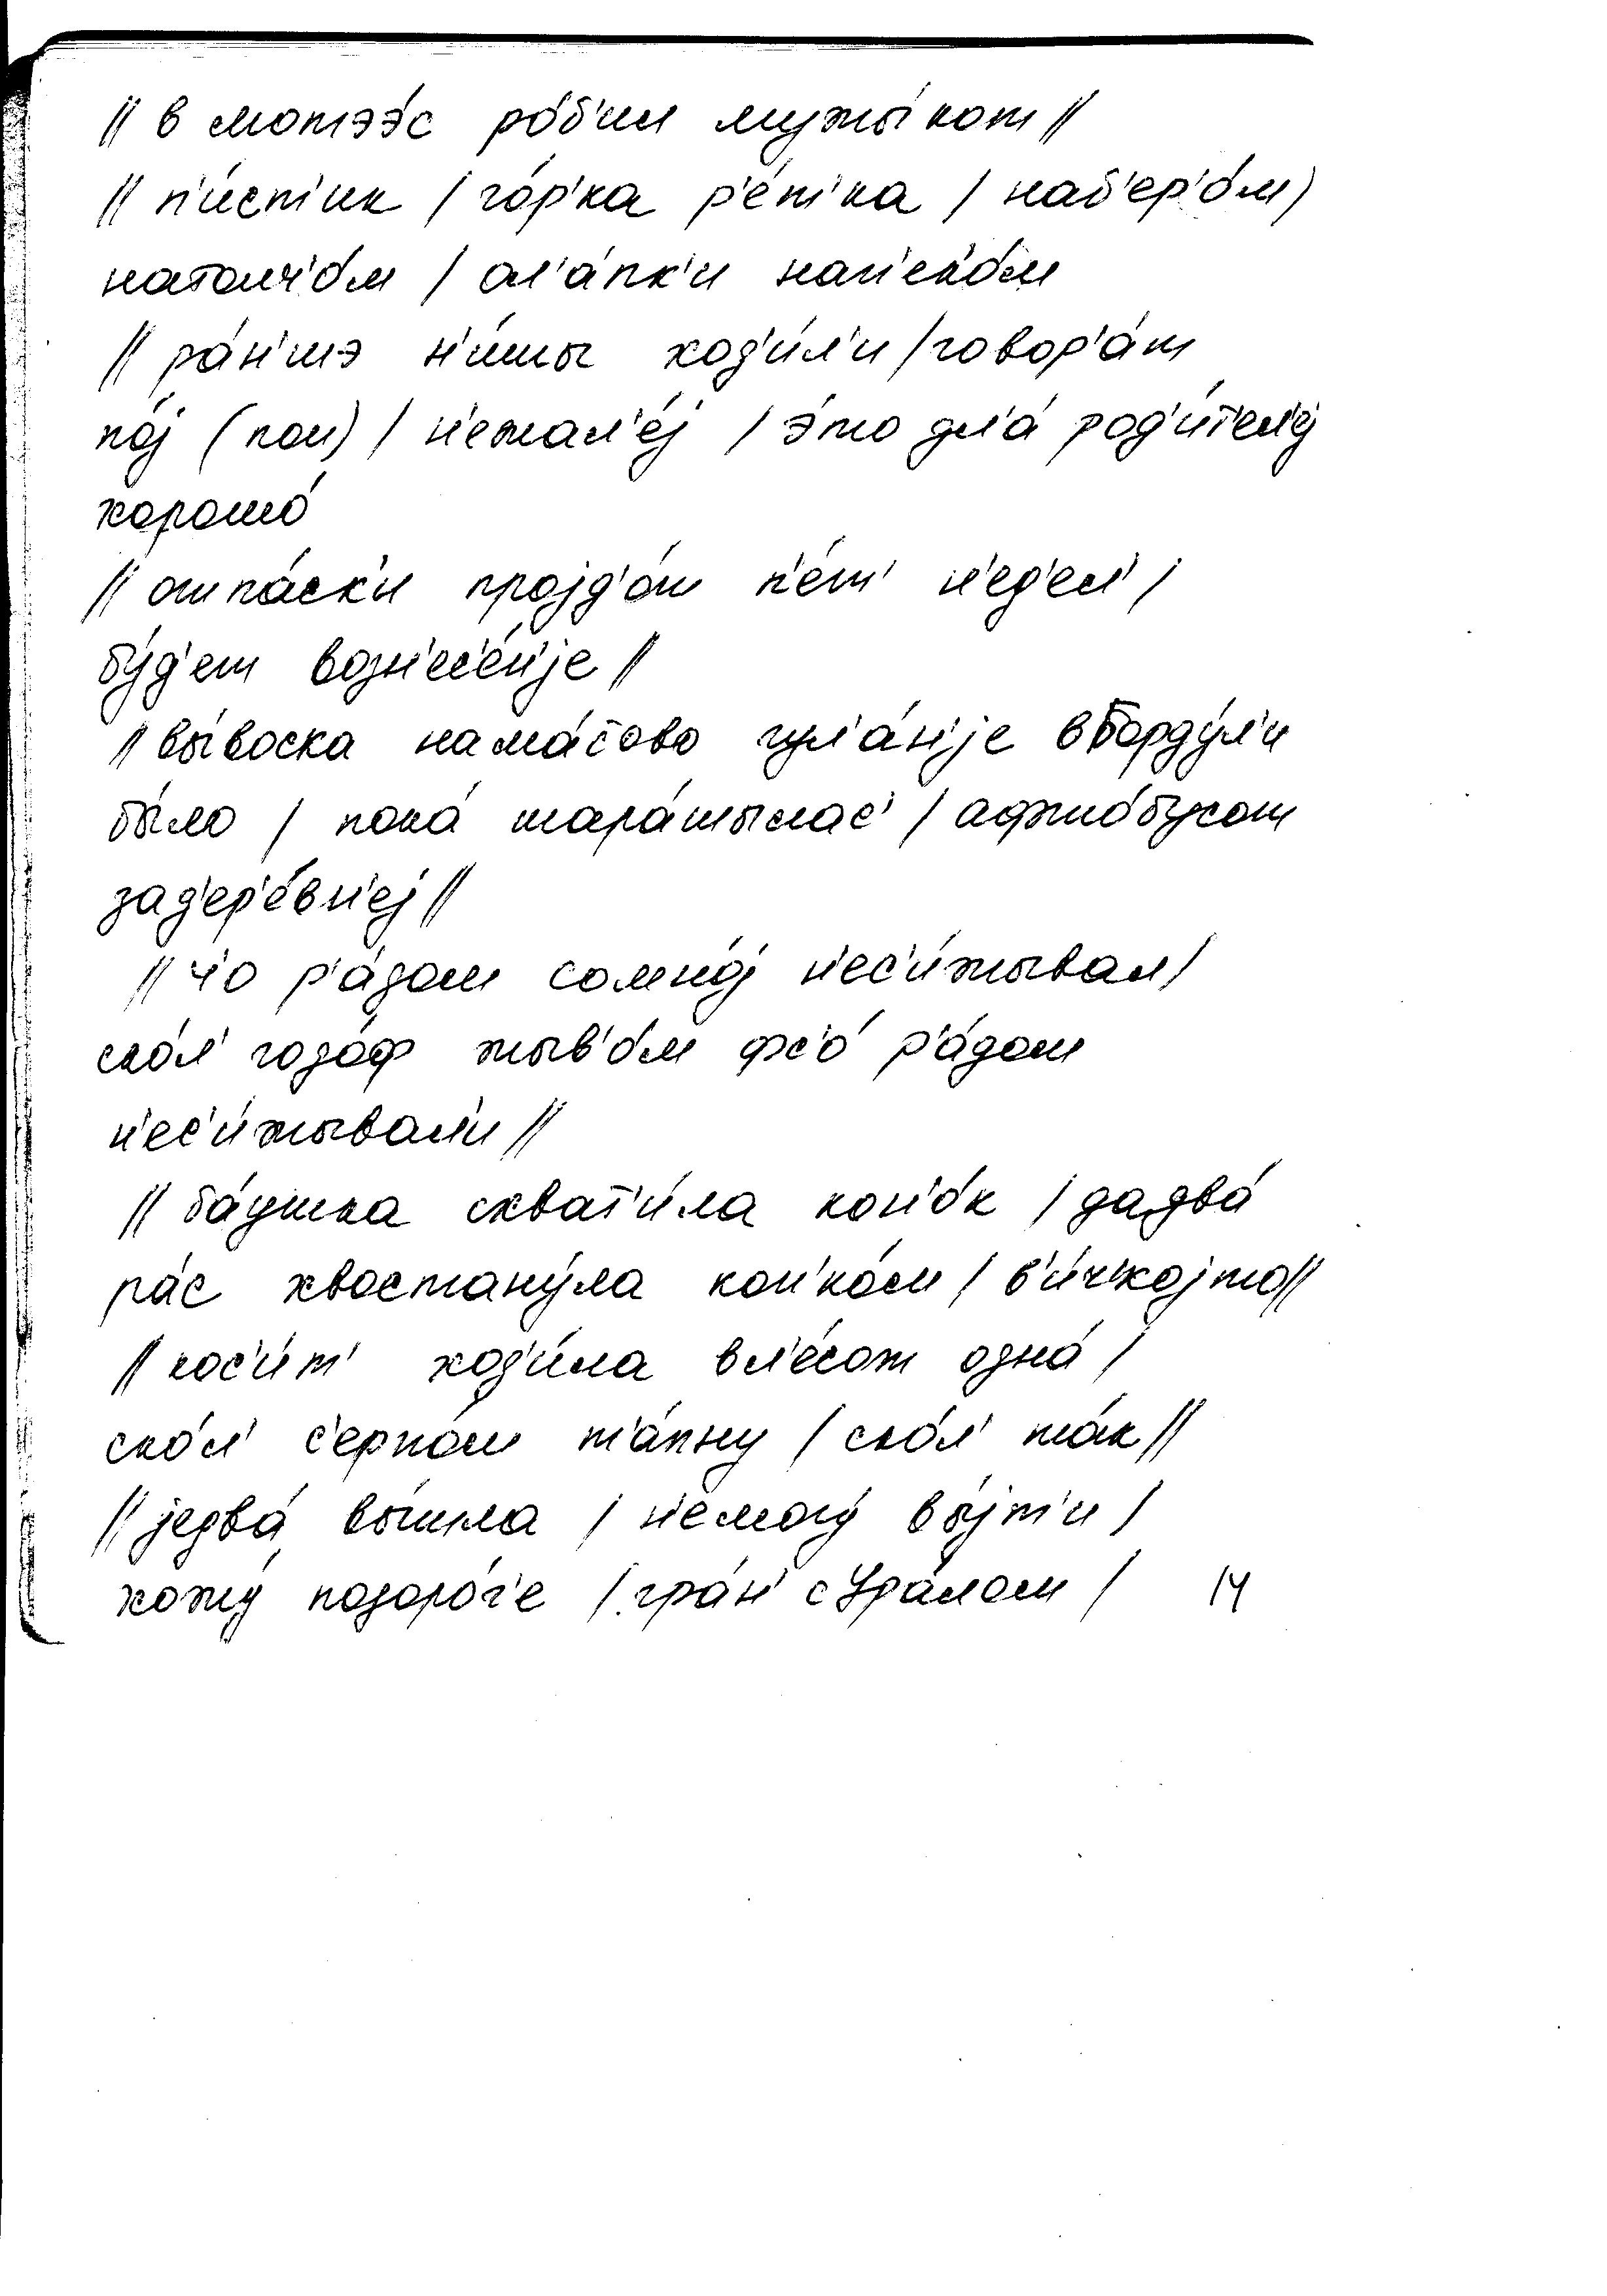 // в мотээ́с ро́б'ил мужы́кот //
// п'и́ст'ик / го́р'ка р'е́т'ка / наб'ер'о́м /
натолч'о́м / ол'а́пк'и нап'ек'о́м
// ра́н'шэ н'и́шшы ход'и́л'и / говор'а́т
по́j (поп) / н'ежал'е́j / э́то дл'а́ род'и́т'ел'еj
хорошо́
// отпа́ск'и проjд'о́т п'е́т' н'ед'ел' /
бу́д'ет возн'ес'е́н'jе //
// вы́воска нама́сово гул'а́н'jе вБорду́л'и
бы́ло / пока́ шара́шылас' / афто́бусот
зад'ер'е́вн'еj //
// ч'о р'а́дом сомно́j н'ес'и́жывал /
ско́л' годо́ф жыв'о́м фс'о́ р'а́дом
н'ес'и́жывал'и //
// ба́ушка схват'и́ла кон'о́к / дадва́
ра́с хвостану́ла кон'ко́м / в'и́ч'коjто //
// кос'и́т' ход'и́ла вл'е́сот одна́ /
ско́л' с'ерпо́м т'а́пну / ско́л' та́к //
// jедва́ вы́шла / н'емогу́ вы́jт'и /
хожу́ подоро́г'е / гра́н' с Ура́лом / 14